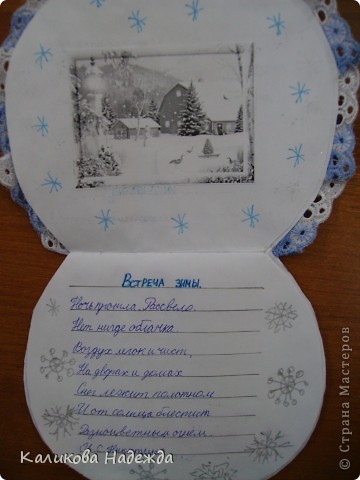 Встреча зимы.
Ночь прошла. Рассвело.
Нет нигде облачка.
Воздух легок и чист,
На дворах и домах
Снег лежит полотном
И от солнца блестит
Разноцветным огнем.
И.С. Никитин
Каликова Надежда
© Страна Мастеров